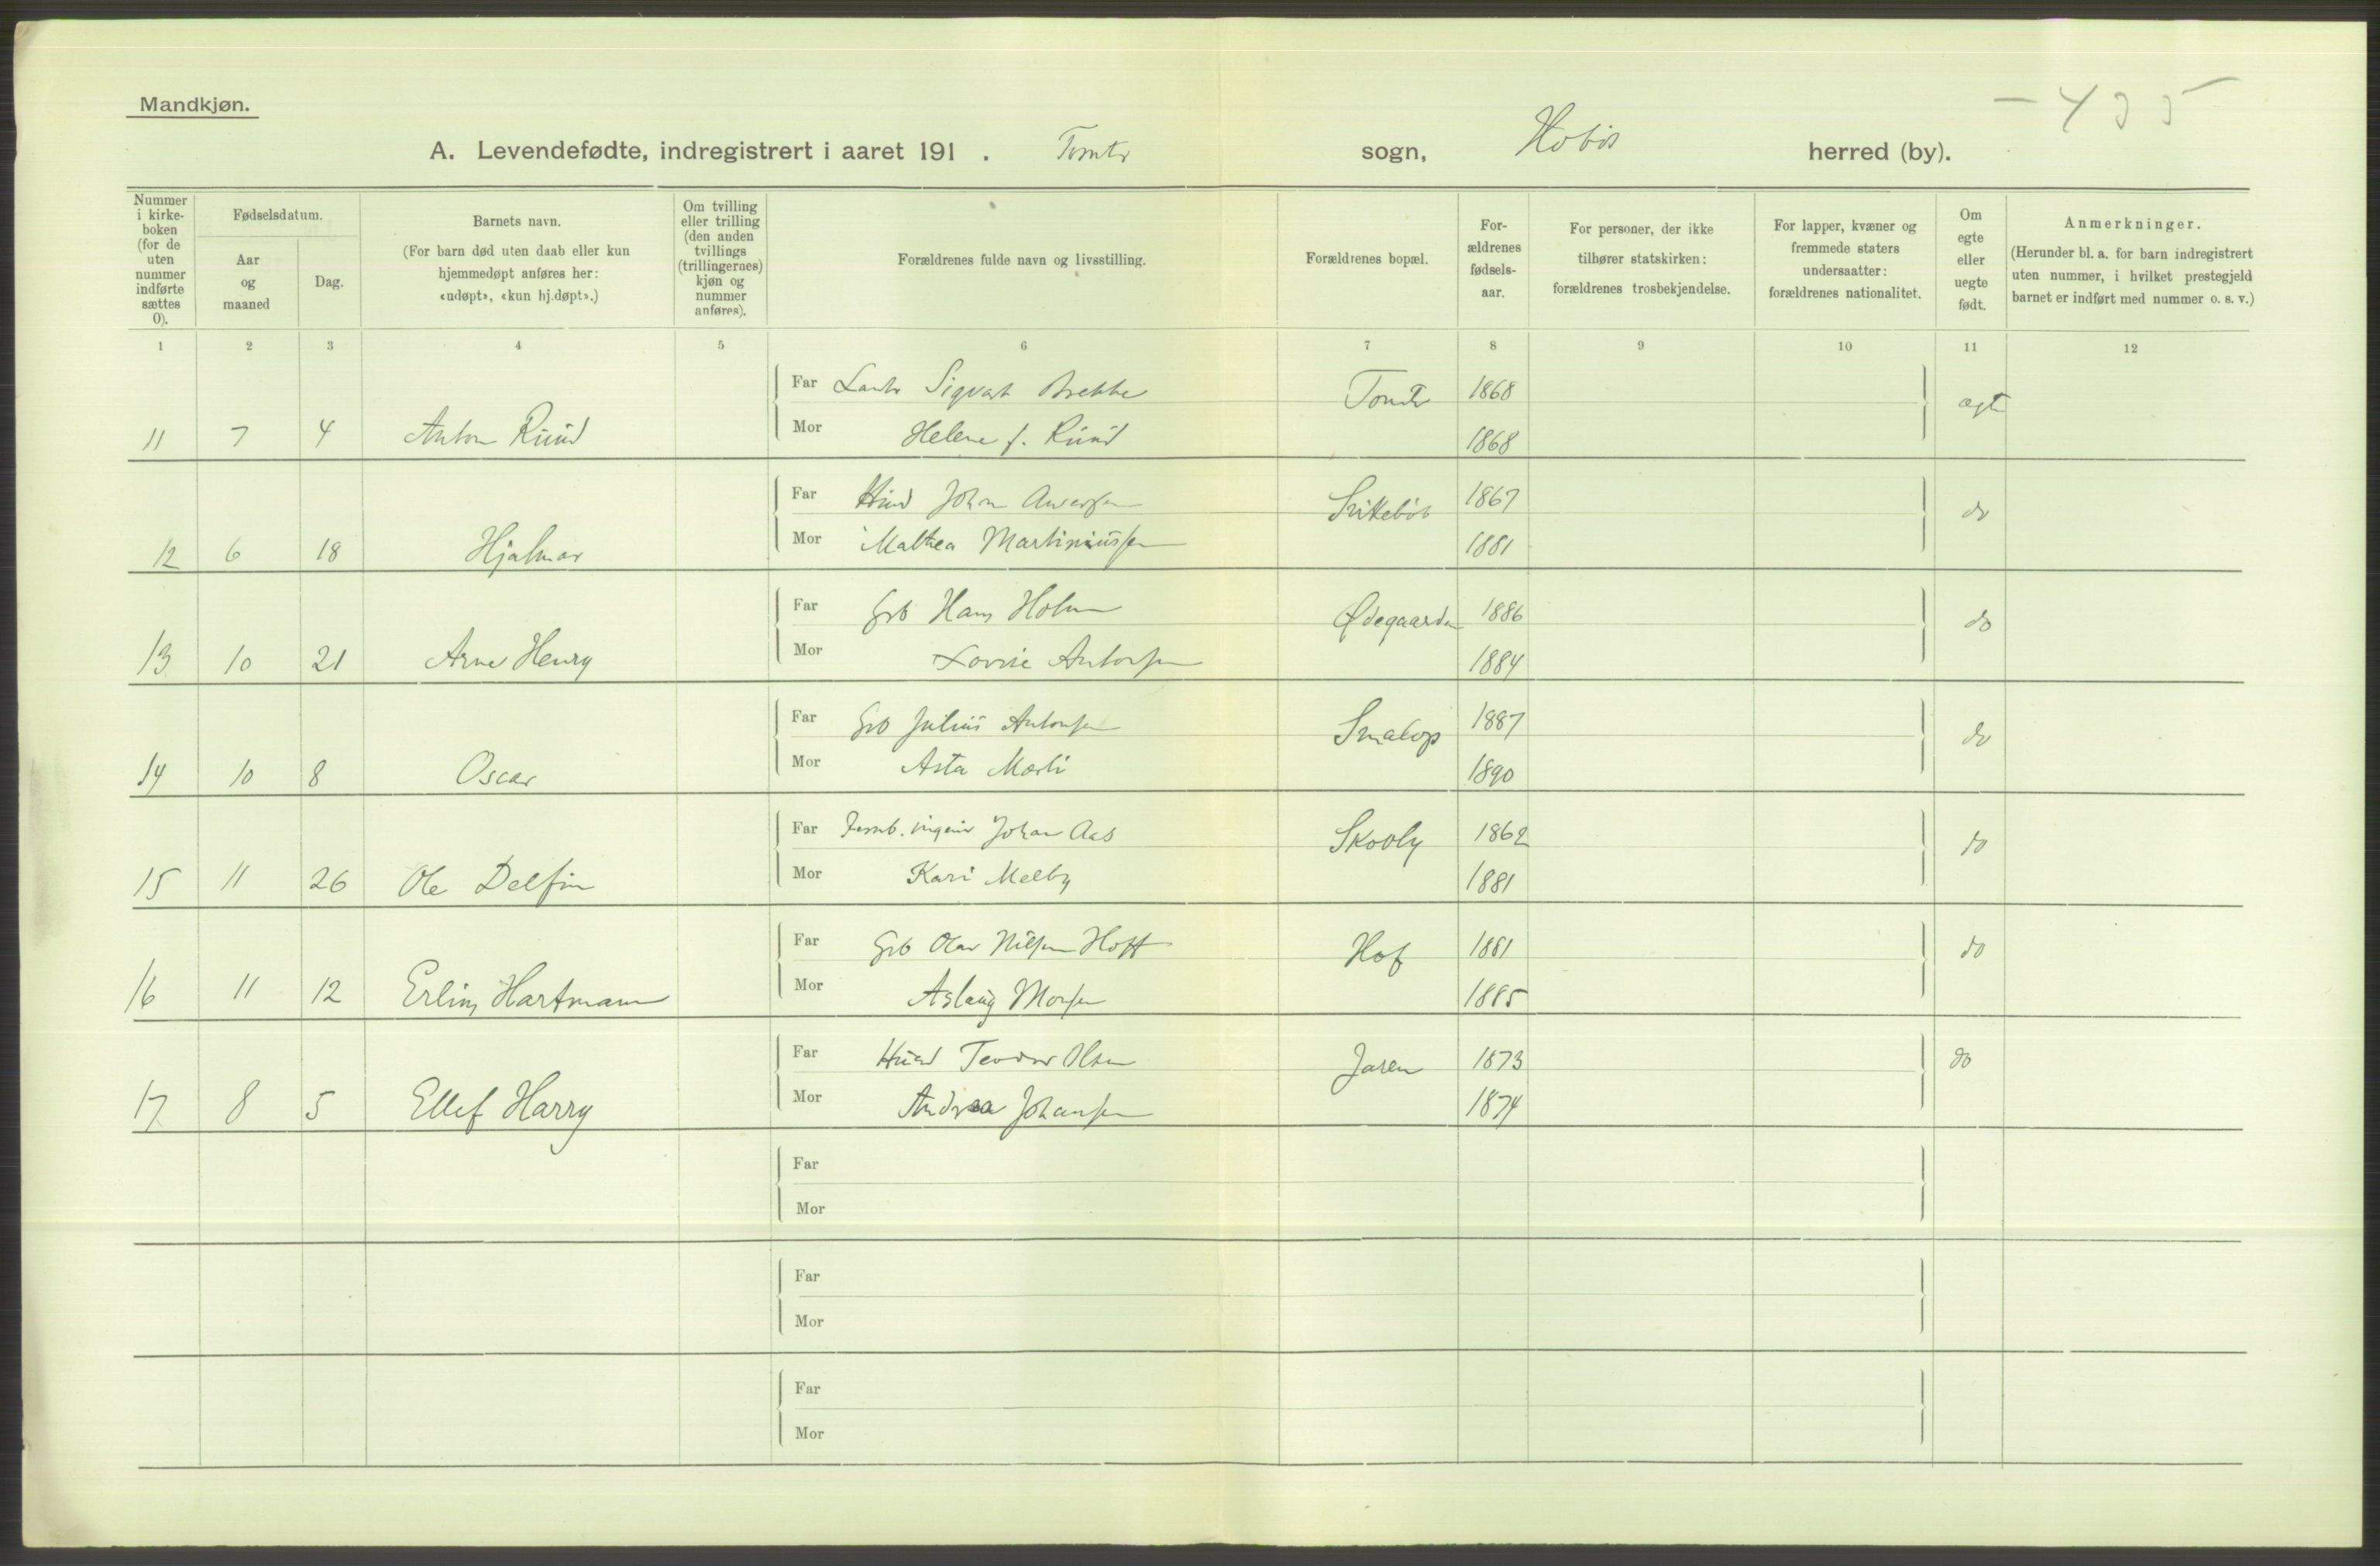 Mandkjøn.
- 435
A. Levendefødte, indregistrert i aaret 191 . Tomter sogn, Hobøl herred (by).
Nummer i kirke- boken (for de uten nummer indførte sættes 0).
Fødselsdatum.
Aar og maaned
Dag.
Barnets navn.
(For barn død uten daab eller kun hjemmedøpt anføres her: «udøpt», «kun hj.døpt».)
Om tvilling eller trilling (den anden tvillings (trillingernes) kjøn og nummer anføres).
Forældrenes fulde navn og livsstilling.
Forældrenes bopæl.
For- ældrenes fødsels- aar.
For personer, der ikke tilhører statskirken: forældrenes trosbekjendelse.
For lapper, kvæner og fremmede staters undersaatter: forældrenes nationalitet.
Om egte eller uegte født.
Anmerkninger.
(Herunder bl. a. for barn indregistrert uten nummer, i hvilket prestegjeld barnet er indført med nummer o. s. v.)
1 2 3 4 5 6 7 8 9 10 11 12
Far Sigvart Brekke Tomter 1868 ægte
11 7 4 Anton Ruud Mor Helene f. Ruud 1868
Far Husmd Johan Andersen 1867 do
12 6 18 Hjalmar Mor Mathea Martiniussen 1881
Far Grb Hans Holm Ødegaarden 1886 do
13 10 21 Arne Henry Mor Lovise Antonsen 1884
Far Grb Julius Antonsen 1887 do
14 10 8 Oscar Mor Asta Moeli 1890
Far Jernb. ingeniør Johan Aas Skovly 1862 do
15 11 26 Ole Delfin Mor Kari Melby 1881
Far Grb Olav Nilsen Hoff Hof 1881 do
16 11 12 Erling Hartmann Mor Aslaug Monsen 1885
Far Husmd Teodor Olsen Jaren 1873 do
17 8 5 Ellef Harry Mor Andrea Johansen 1874
Far
Mor
Far
Mor
Far
Mor